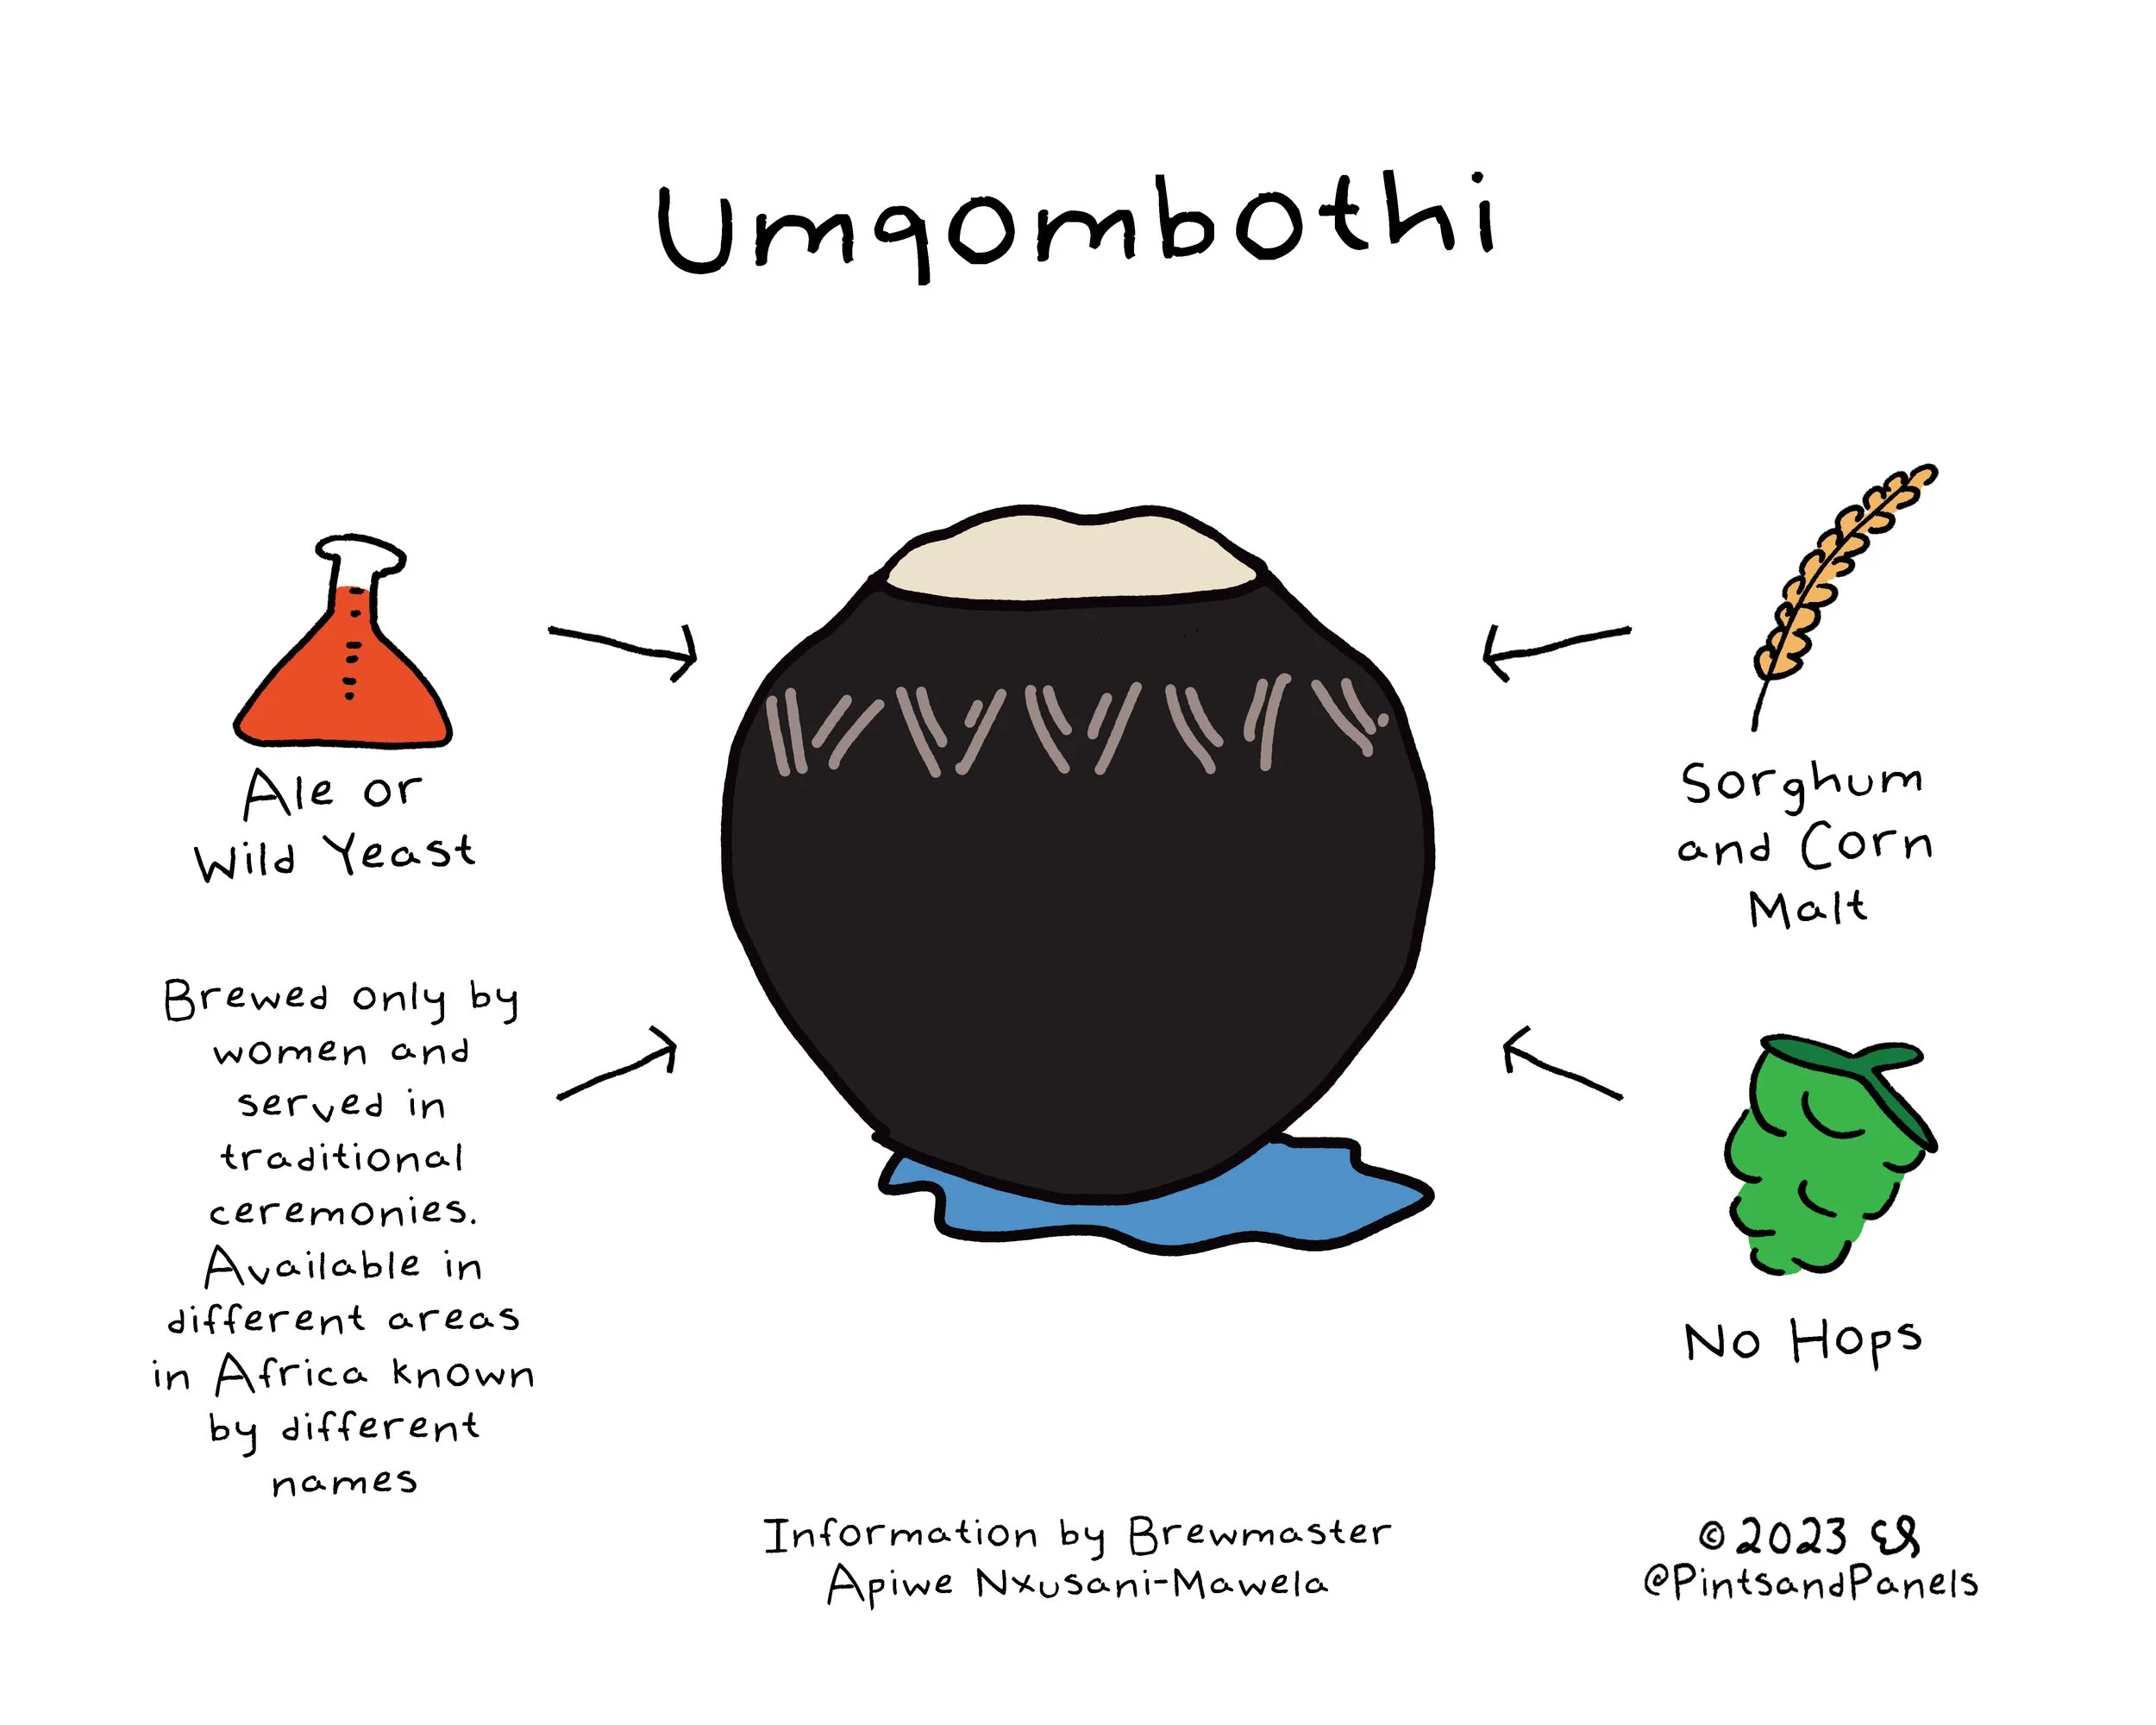 Umqombothi
Ale or
Wild Yeast
Sorghum
and Corn
Malt
Brewed only by
women and
served in
traditional
ceremonies.
Available in
different areas
in Africa known
by different
names
No Hops
Information by Brewmaster
Apiwe Nxusani-Mawela
©2023
@PintsandPanels